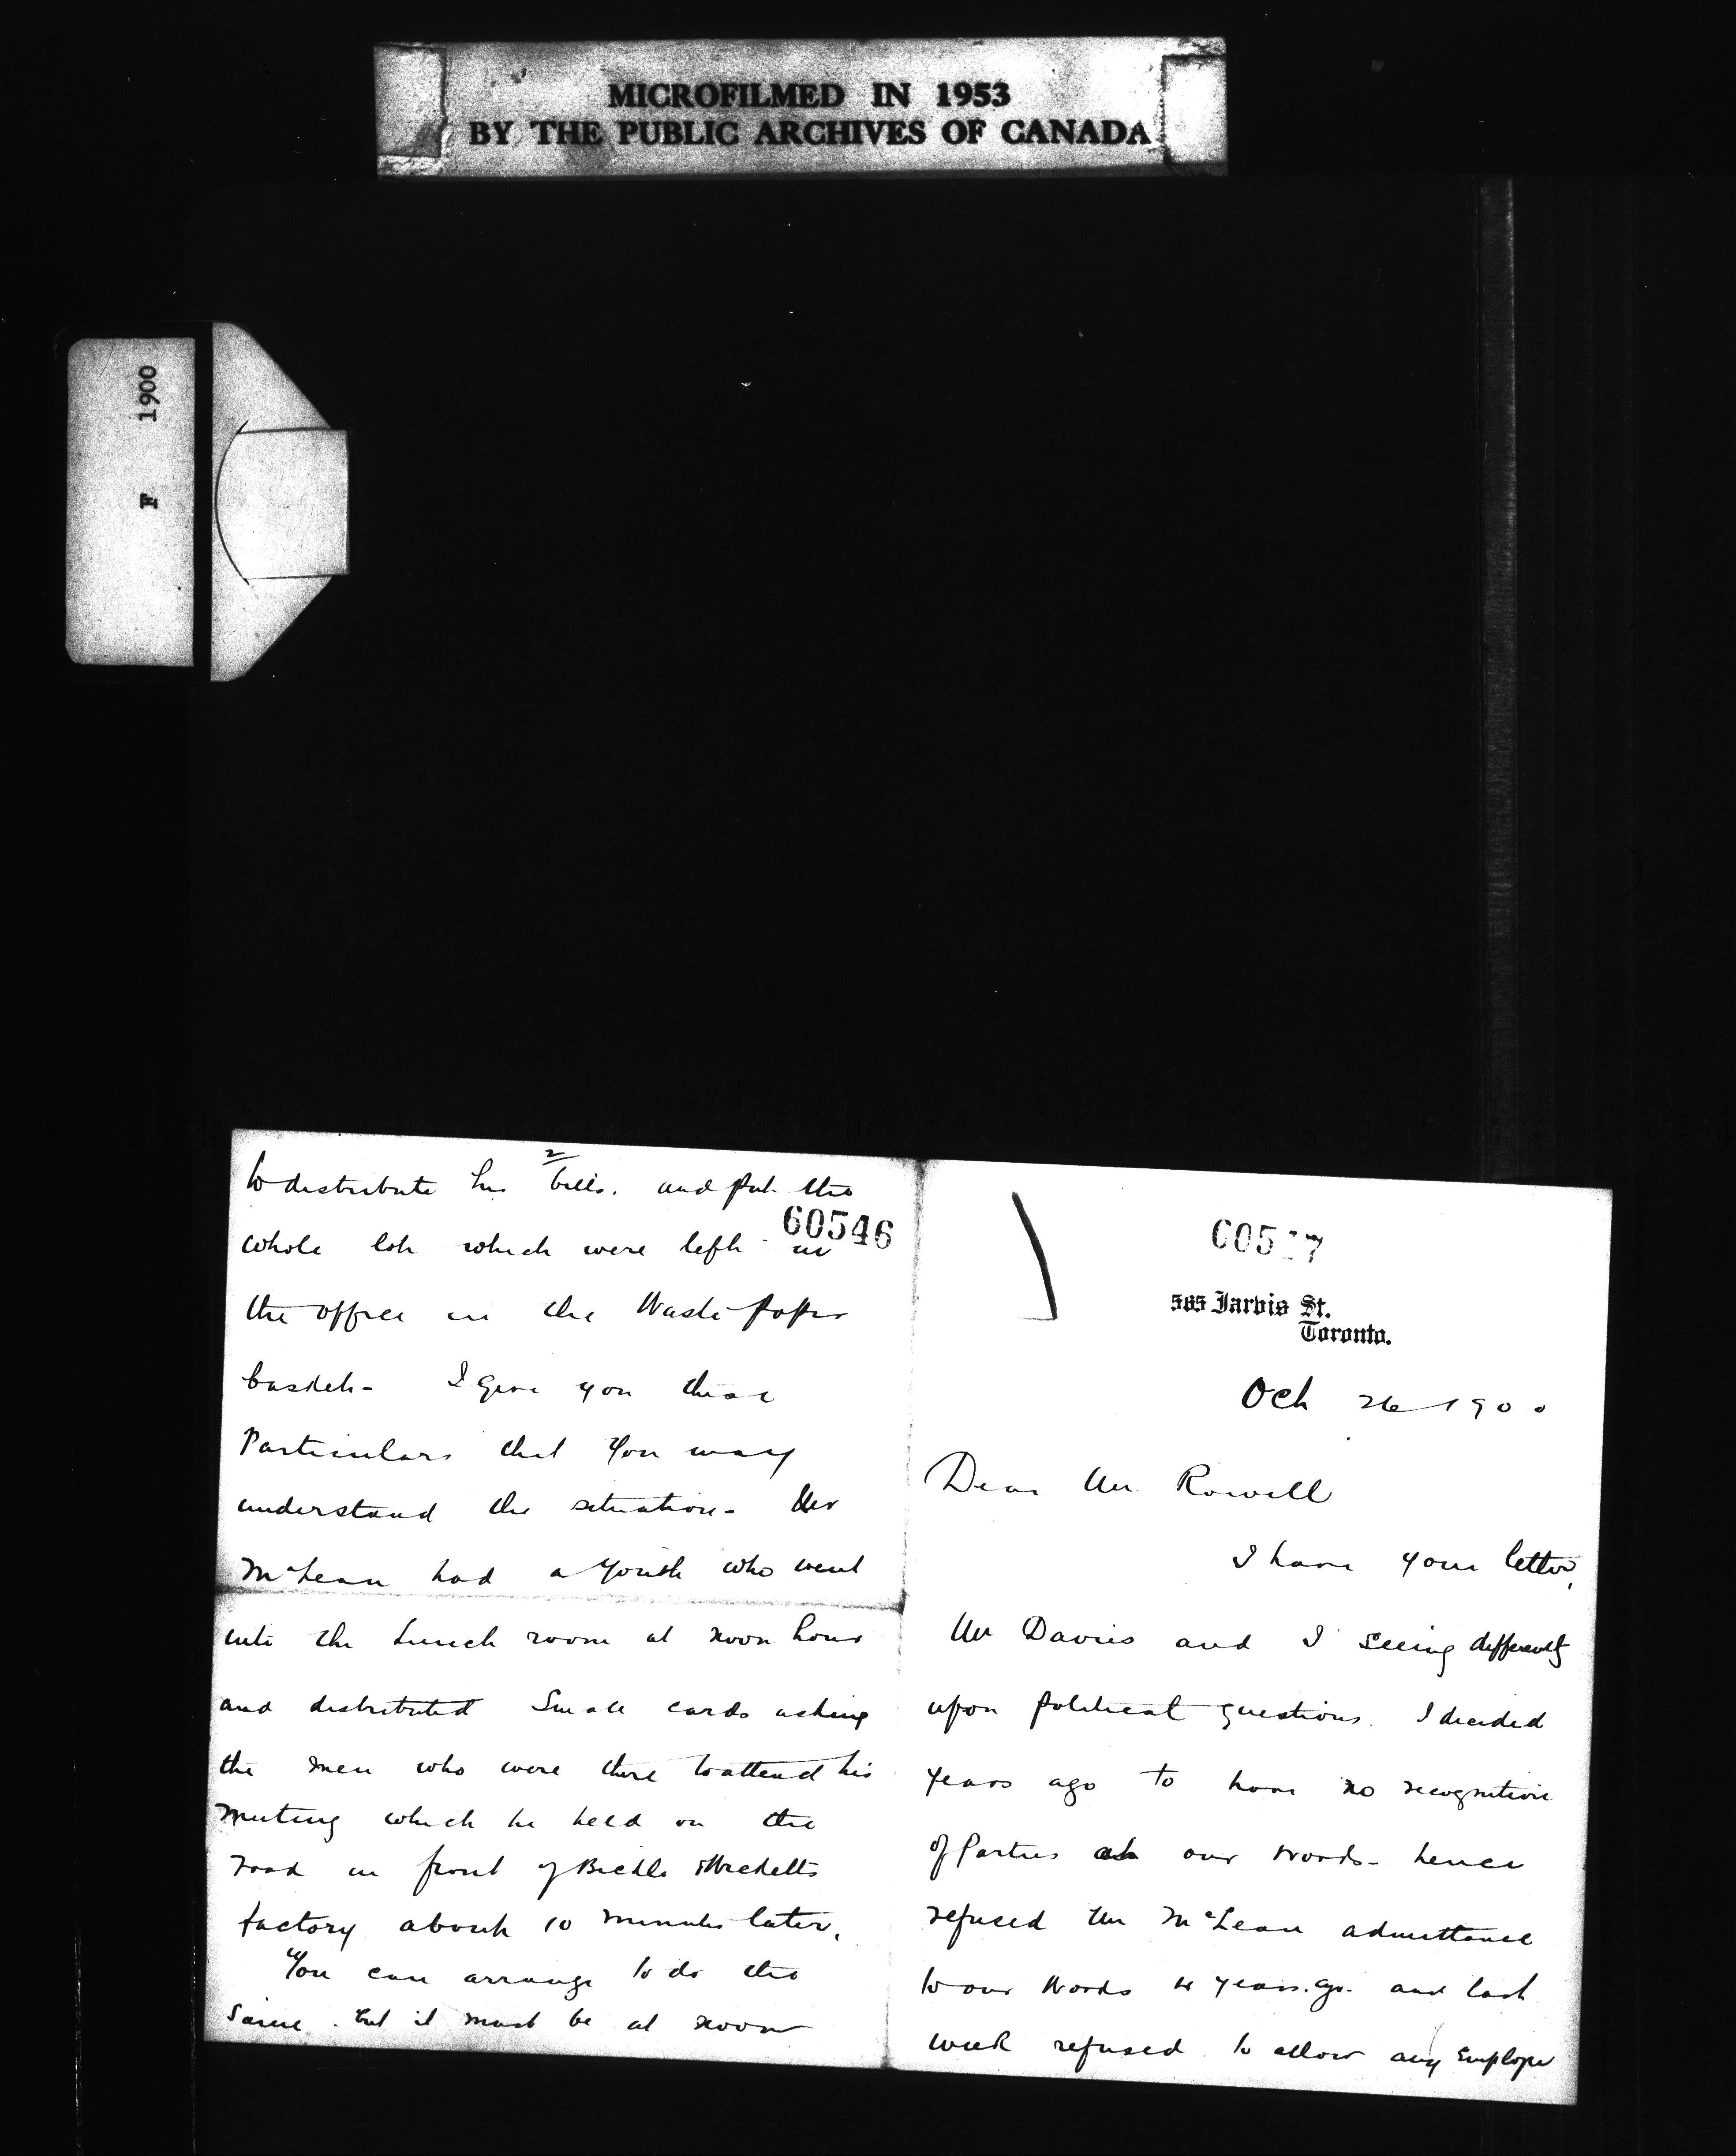 MICROFILMED IN 1953
BY THE PUBLIC ARCHIVES OF CANADA
F 1900
605 7
585 Jarvis St.
Toronto.
Oct 26 1900
Dear Mr Rowell
I have your letter,
Mr Davies and I seeing differently
upon political questions. I decided
years ago to have no recognition
of Parties at our works - hence
refused Mr McLean admittance
to our Works 4 years. ago. and last
week refused to allow any Employe
2
to distribute his bills. and put the
60546
whole lot which were left in
the office in the Waste-paper
basket - I give you these
Particulars that you may
understand the situation - Mr
McLean had a youth who went
into the Lunch room at noon hour
and distributed Small cards asking
the men who were there to attend his
Meeting which he held on the
road in front of
factory about 10 minutes later.
You can arrange to do the
same. but it must be at noon